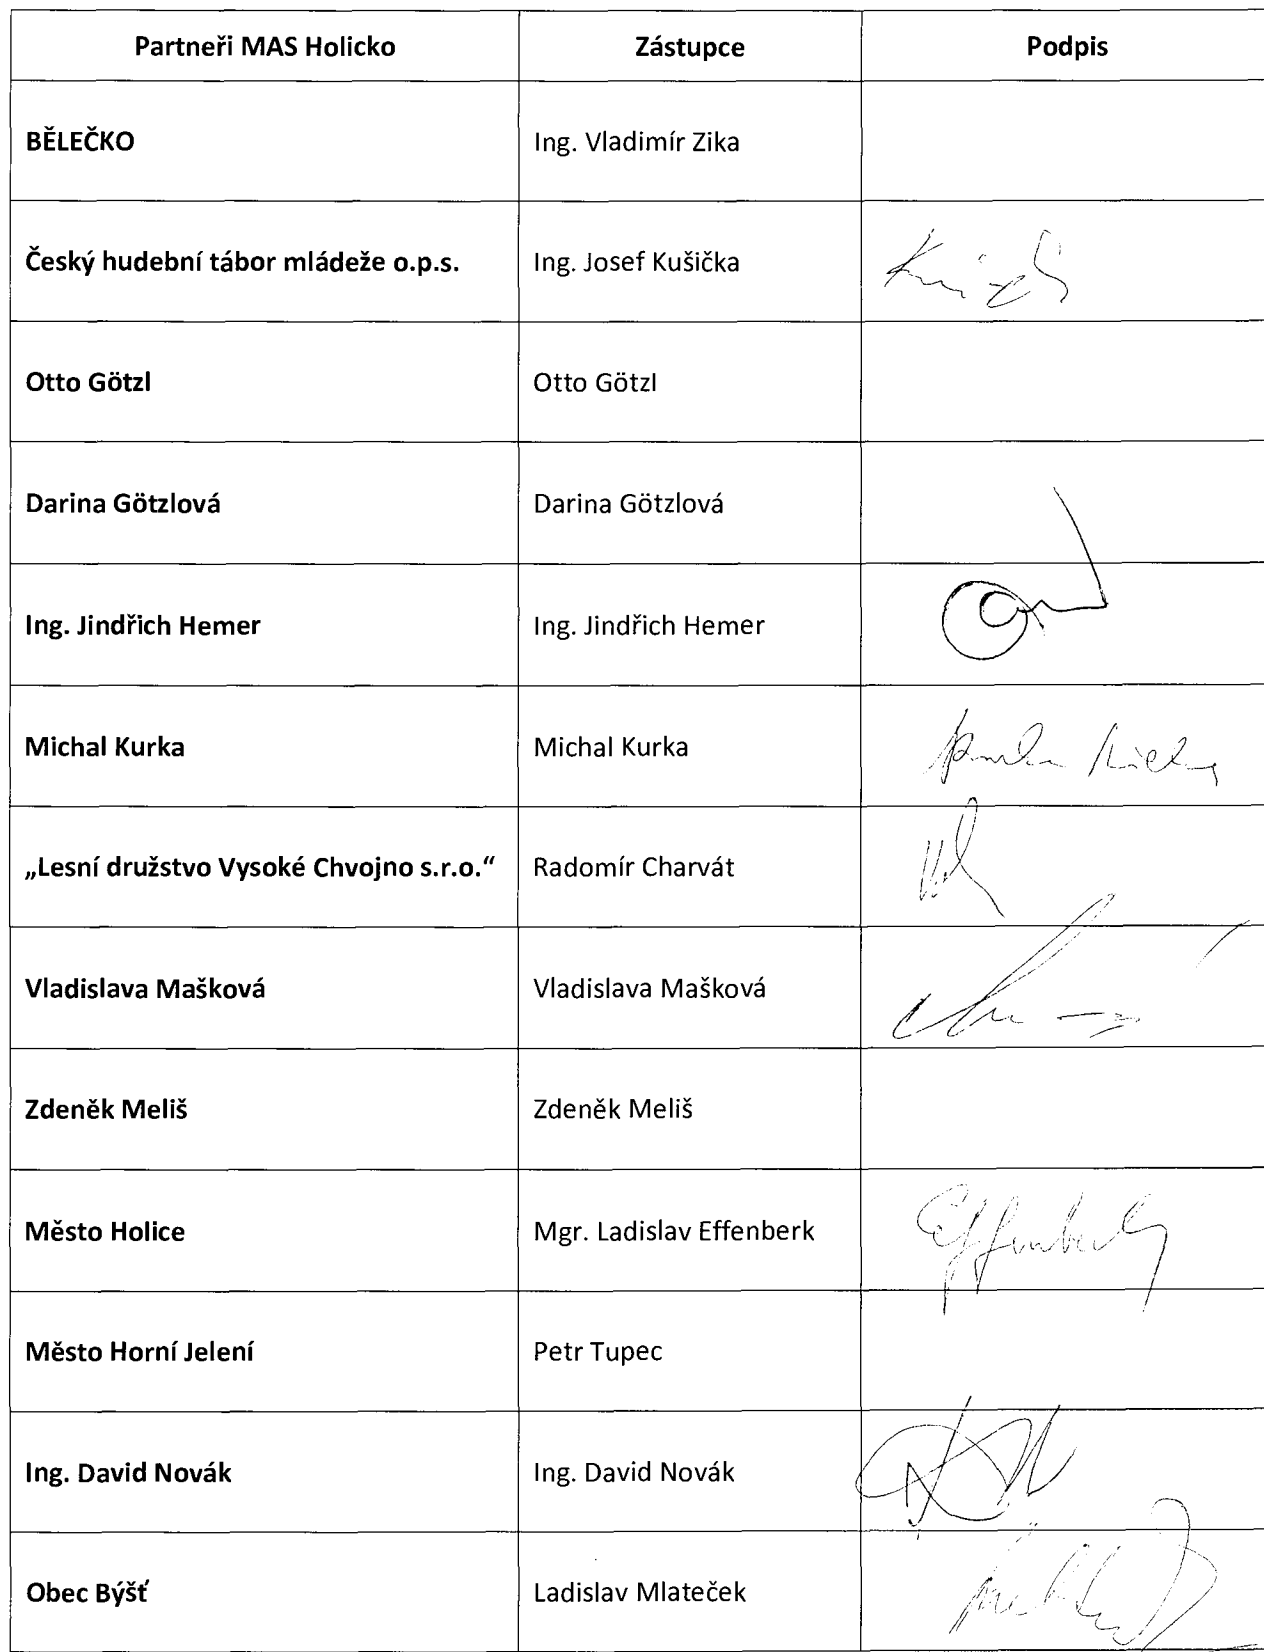 Partneři MAS Holicko Zástupce Podpis
BĚLEČKO Ing. Vladimír Zika
Český hudební tábor mládeže o.p.s. Ing. Josef Kušička
Otto Götzl Otto Götzl
Darina Götzlová Darina Götzlová
Ing. Jindřich Hemer Ing. Jindřich Hemer
Michal Kurka Michal Kurka
„Lesní družstvo Vysoké Chvojno s.r.o.“ Radomír Charvát
Vladislava Mašková Vladislava Mašková
Zdeněk Meliš Zdeněk Meliš
Město Holice Mgr. Ladislav Effenberk Effenberk
Město Horní Jelení Petr Tupec
Ing. David Novák Ing. David Novák
Obec Býšť Ladislav Mlateček